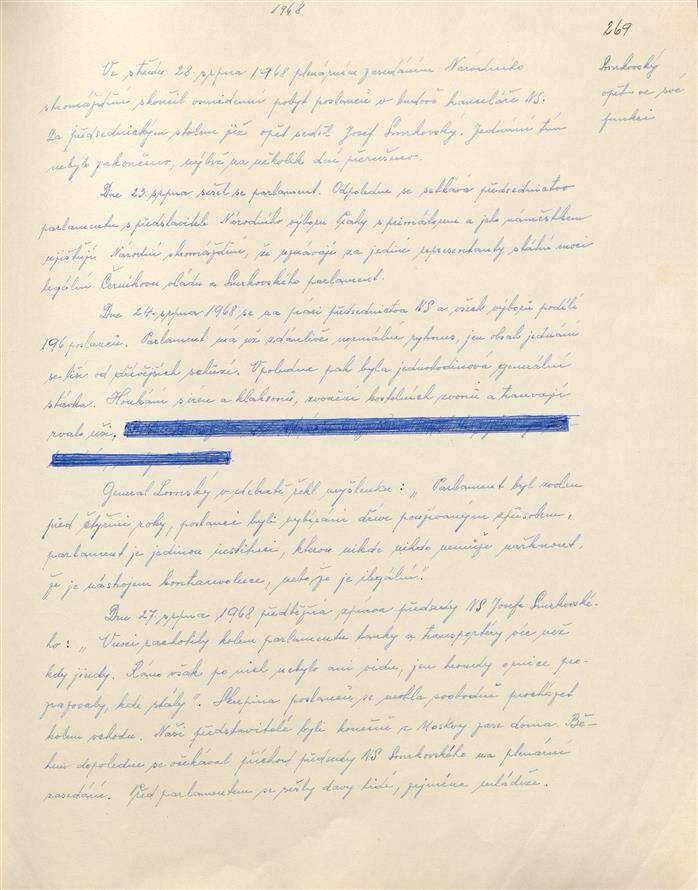 1968
269
Smrkovský
opět ve své
funkci
Ve středu 28. srpna 1968 plenárním zasedáním Národního
shromáždění skončil osmidenní pobyt poslanců v budově kanceláře NS.
Za předsednickým stolem již opět seděl Josef Smrkovský. Jednání tím
nebylo zakončeno, nýbrž na několik dní přerušeno.
Dne 23. srpna sešel se parlament. Odpoledne se setkává předsednictvo
parlamentu s představiteli Národního výboru Prahy s primátorem a jeho náměstkem
ujišťují Národní shromáždění, že uznávají za jediné representanty státní moci
legální Černíkovu vládu a Smrkovského parlament.
Dne 24. srpna 1968 se na práci předsednictva NS a všech výborů podílí
196 poslanců. Parlament má už zdánlivě normální rytmus, jen obsah jednání
se liší od dřívějších schůzí. V poledne pak byla jednohodinová generální
stávka. Houkání sirén a klaksonů, zvonění kostelních zvonů a tramvají
rvalo uši.
Generál Lomský v debatě řekl myšlenku: „Parlament byl zvolen
před čtyřmi roky, poslanci byli vybíráni dříve používaným způsobem,
parlament je jedinou institucí, kterou nikde nikdo nemůže nařknout,
že je nástrojem kontrarevoluce, nebo že je ilegální".
Dne 27. srpna 1968 předběžná zpráva předsedy NS Josefa Smrkovské-
ho: „V noci rachotily kolem parlamentu tanky a transportéry více než
kdy jindy. Ráno však po nich nebylo ani vidu, jen hromady opnice pro-
zrazovaly, kde stály". Skupina poslanců se mohla svobodně procházet
kolem vchodu. Naši představitelé byli konečně z Moskvy zase doma. Bě-
hem dopoledne se očekával příchod předsedy NS Smrkovského na plenární
zasedání. Před parlamentem se sešly davy lidí, zejména mládeže.